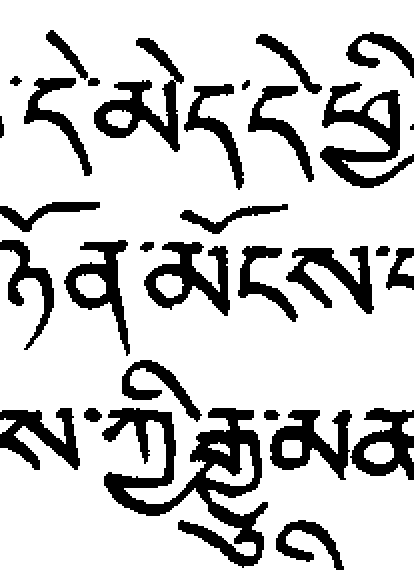 དེ་མེད་དེ་ཕྱི
ཉོན་མོངས་
ས་ཀྱི་རྒྱུ་མ